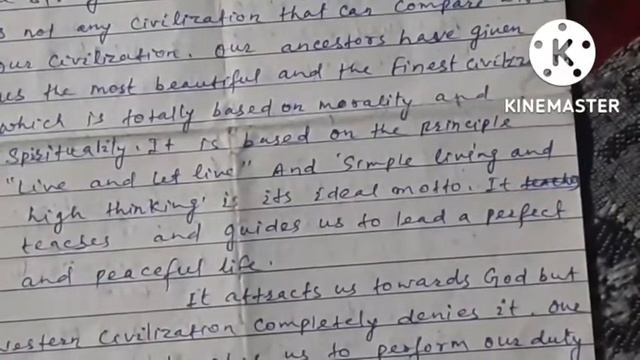 s not any civilization that can compare
our civilization. Our ancestors have given
us the most beautiful and the finest civiliz
which is totally based on morality and
Spirituality. It is based on the principle
"Live and let live" And 'Simple living and
high thinking' is its ideal motto. It
teaches and guides us to lead a perfect
and peaceful life.
It attracts us towards God but
western civilization completely denies it. our
us to perform our duty
KINEMASTER